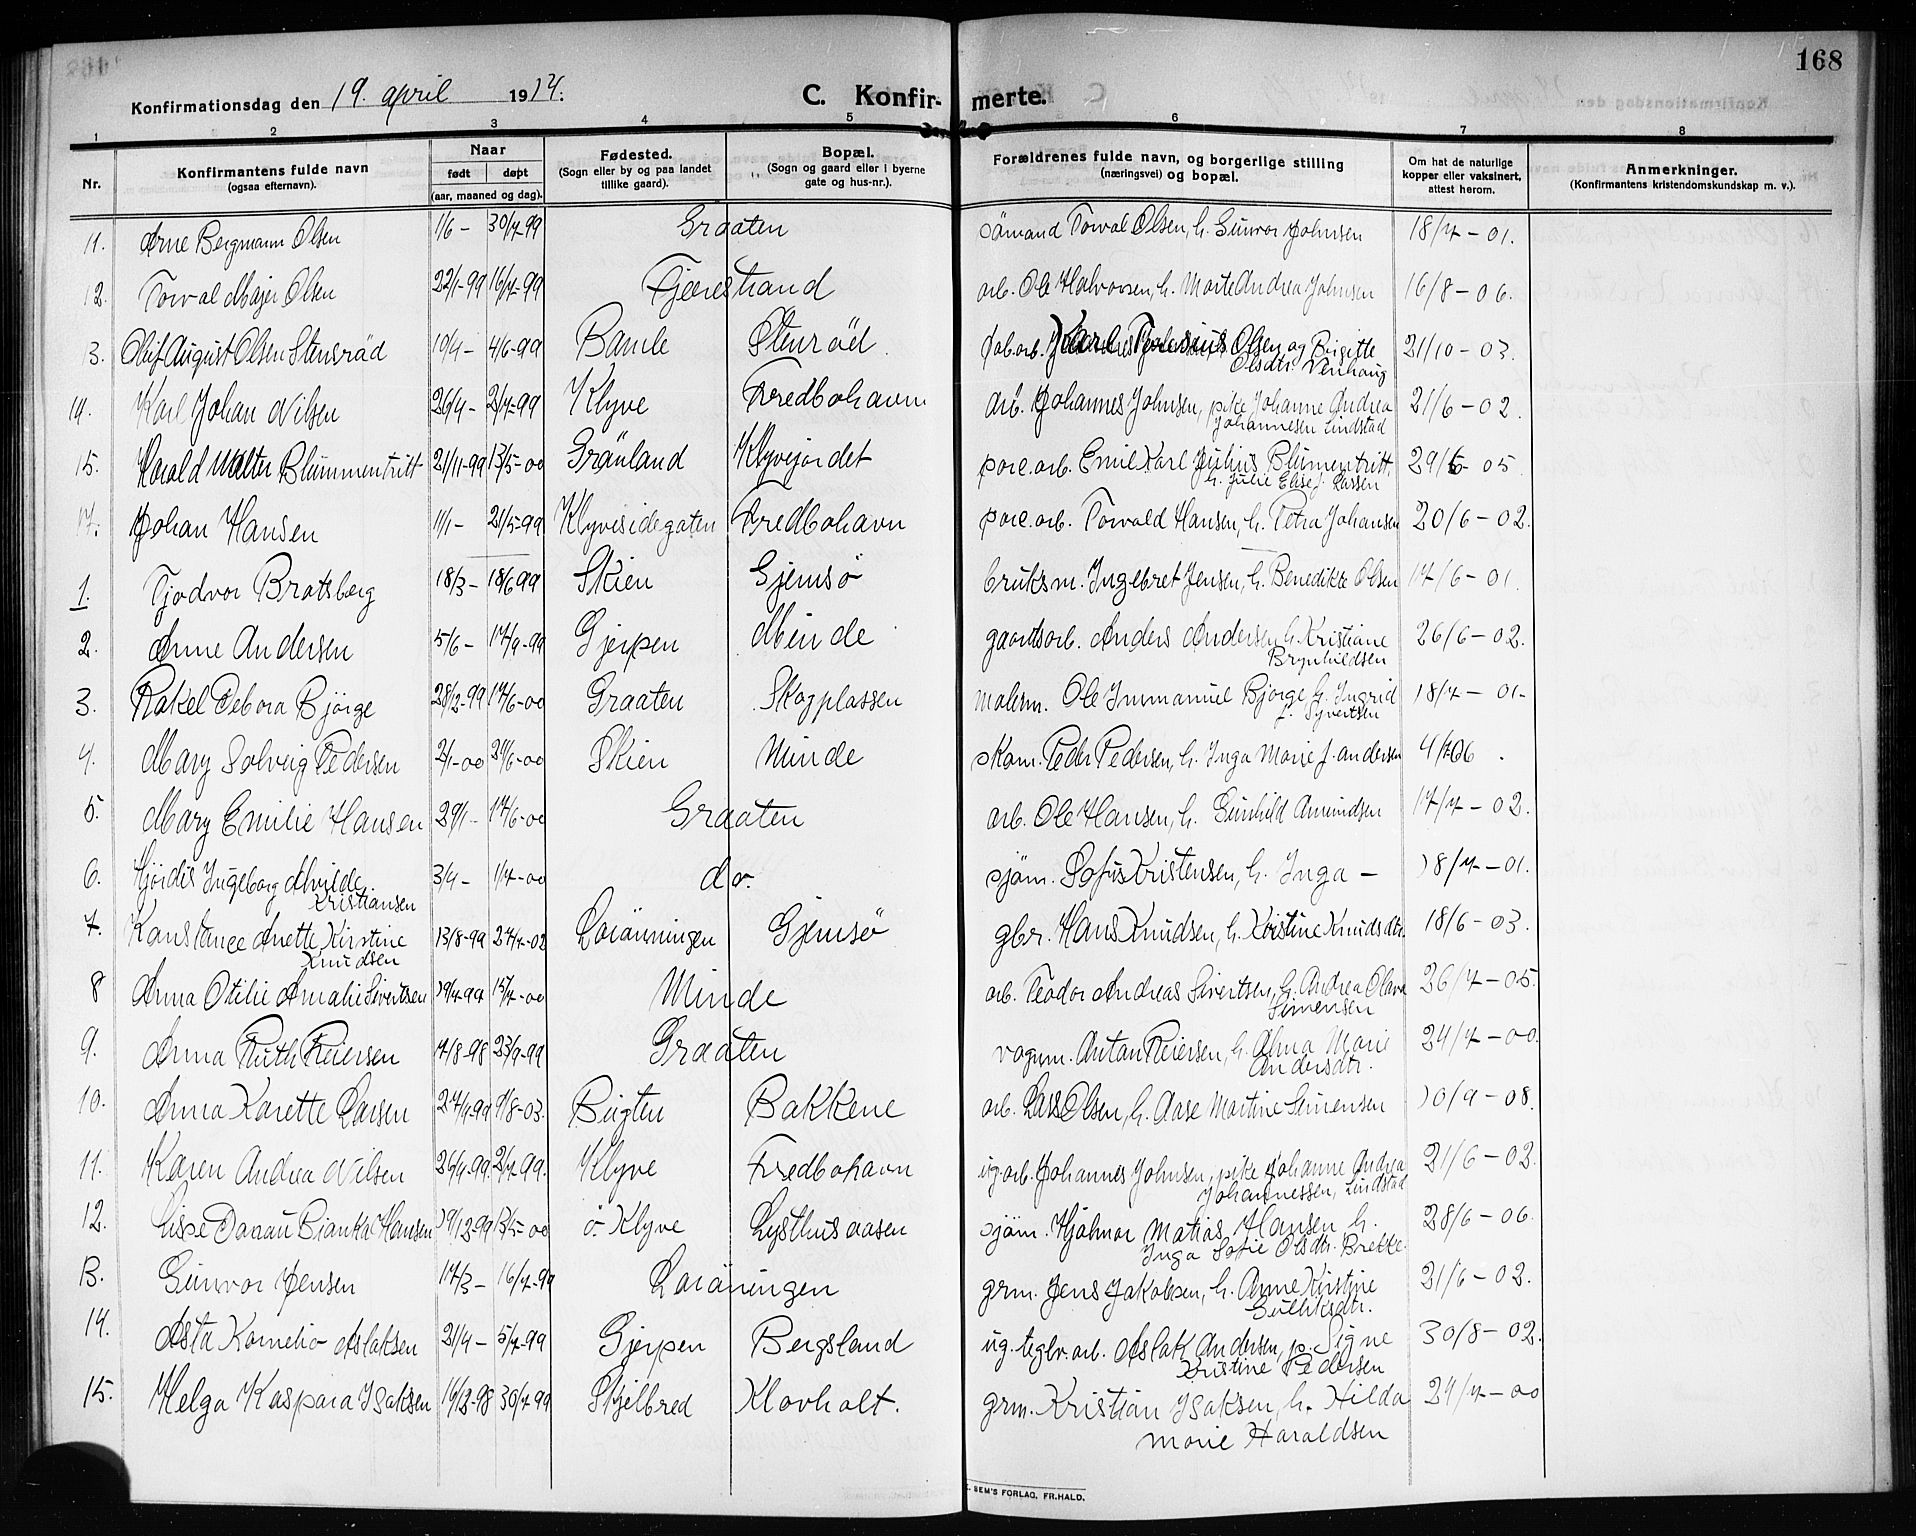 168
Konfirmationsdag den 19. april 1914.
C. Konfir- merte.
1 2 3 4 5 6 7 8
Nr.
Konfirmantens fulde navn
(ogsaa efternavn).
Naar
født døpt
(aar, maaned og dag).
Fødested.
(Sogn eller by og paa landet
tillike gaard).
Bopæl.
(Sogn og gaard eller i byerne
gate og hus-nr.).
Forældrenes fulde navn, og borgerlige stilling
(næringsvei) og bopæl.
Om hat de naturlige
kopper eller vaksinert,
attest herom.
Anmerkninger.
(Konfirmantens kristendomskundskap m. v.).
11. Arne Bergmann Olsen 1/6 - 30/7-99 Graaten Sømand Torval Olsen, h. Gunvor Johnsen 18/7-01.
12. Torval Majer Olsen 22/1-99 16/7-99 Fjærestrand arb. Ole Halvorsen, h. Marte Andrea Johnsen 16/8-06.
3. Oluf August Olsen Stensrød 10/4 - 4/6-99 Bamle Stenrød fab.arb. Olsen og Brigitte 21/10-03.
Olsdtr. Venhaug
14. Karl Johan Nilsen 26/4 - 2/7-99 Klyve Fredbohavn arb. Johannes Johnsen, pike Johanne Andrea 21/6-02.
Johannesen Lindstad
15. Harald Walter Blummentritt 21/11-99 13/5-00 Grønland Klyvejordet porc.arb. Emil Karl Julius Blumentritt, 29/6-05
h. Julie Elise f. Larsen
17. Johan Hansen 11/1 - 21/5-99 Klyvesidegaten Fredbohavn porc.arb. Torvald Hansen, h. Petra Johansen 20/6-02.
1. Tjodvor Bratsberg 18/3 - 18/6 99 Skien Gjemsø bruksm. Ingebret Jensen, h. Benedikte Olsen 17/6-01.
2. Anne Andersen 5/6 - 17/9-99 Gjerpen Minde gaardsarb. Anders Andersen h. Kristiane 26/6-02.
Brynhildsen
3. Rakel Debora Bjørge 28/12-99 17/6-00 Graaten Skogplassen malerm. Ole Immanuel Bjørge h. Ingrid 18/7-01-
f. Syvertsen
4. Mary Solveig Pedersen 2/1-00 24/6-00 Skien Minde skom. Peder Pedersen, h. Inga Marie f. Andersen
5. Mary Emilie Hansen 29/1 - 17/6-00 Graaten arb. Ole Hansen, h. Gunhild Amundsen 17/7-02.
6. Hjørdis Ingeborg Alvilde 3/4 - 1/7-00 do. sjøm. Sofus Kristensen, h. Inga - 18/7-01.
Kristiansen
7. Konstance Anette Kirstine 13/8-99 27/7-02 Lorønningen Gjemsø gbr. Hans Knudsen, h. Kristine Knudsdtr. 18/6-03.
Knudsen
8 Anna Otilie Amalie Sivertsen 19/7-99 15/7-00 Minde arb. Teodor Andreas Sivertsen, h. Andrea Olava 26/7-05.
Simensen
9. Anna Ruth Reiersen 17/8-98 23/9-99 Graaten vognm. Anton Reiersen, h. Alma Marie 24/7-00.
Andersdtr.
10. Anna Karette Larsen 27/9-99 9/8-03. Bugten Bakkene arb. Lars Olsen, h. Aase Martine Simensen 10/9-08.
11. Karen Andrea Nilsen 26/4-99. 2/7-99. Klyve Fredbohavn ug.arb. Johannes Johnsen, pike Johanne Andrea 21/6-02.
Johannessen, Lindstad
12. Lisse Danau Bianka Hansen 19/12-99 13/5-00 ö. Klyve Lysthusaasen sjøm. Hjalmar Matias Hansen h. 28/6-06.
Inga Sofie Olsdtr. Brekke.
13. Gunvor Jensen 17/3 - 16/7-99 Lorøningen grm. Jens Jakobsen, h. Anne Kirstine 21/6-02.
Gulliksdtr.
14. Asta Kornelia Aslaksen 21/4 - 5/7-99 Gjerpen Bergsland ug. teglv.arb. Aslak Andersen, p. Signe 30/8-02.
Kristine Pedersen
15. Helga Kaspara Isaksen 16/12-98 30/7-99 Skjelbred Klovholt. grm. Kristian Isaksen, h. Hilda 24/7-00
Marie Haraldsen
SEM'S FORLAG, FR.HALD.